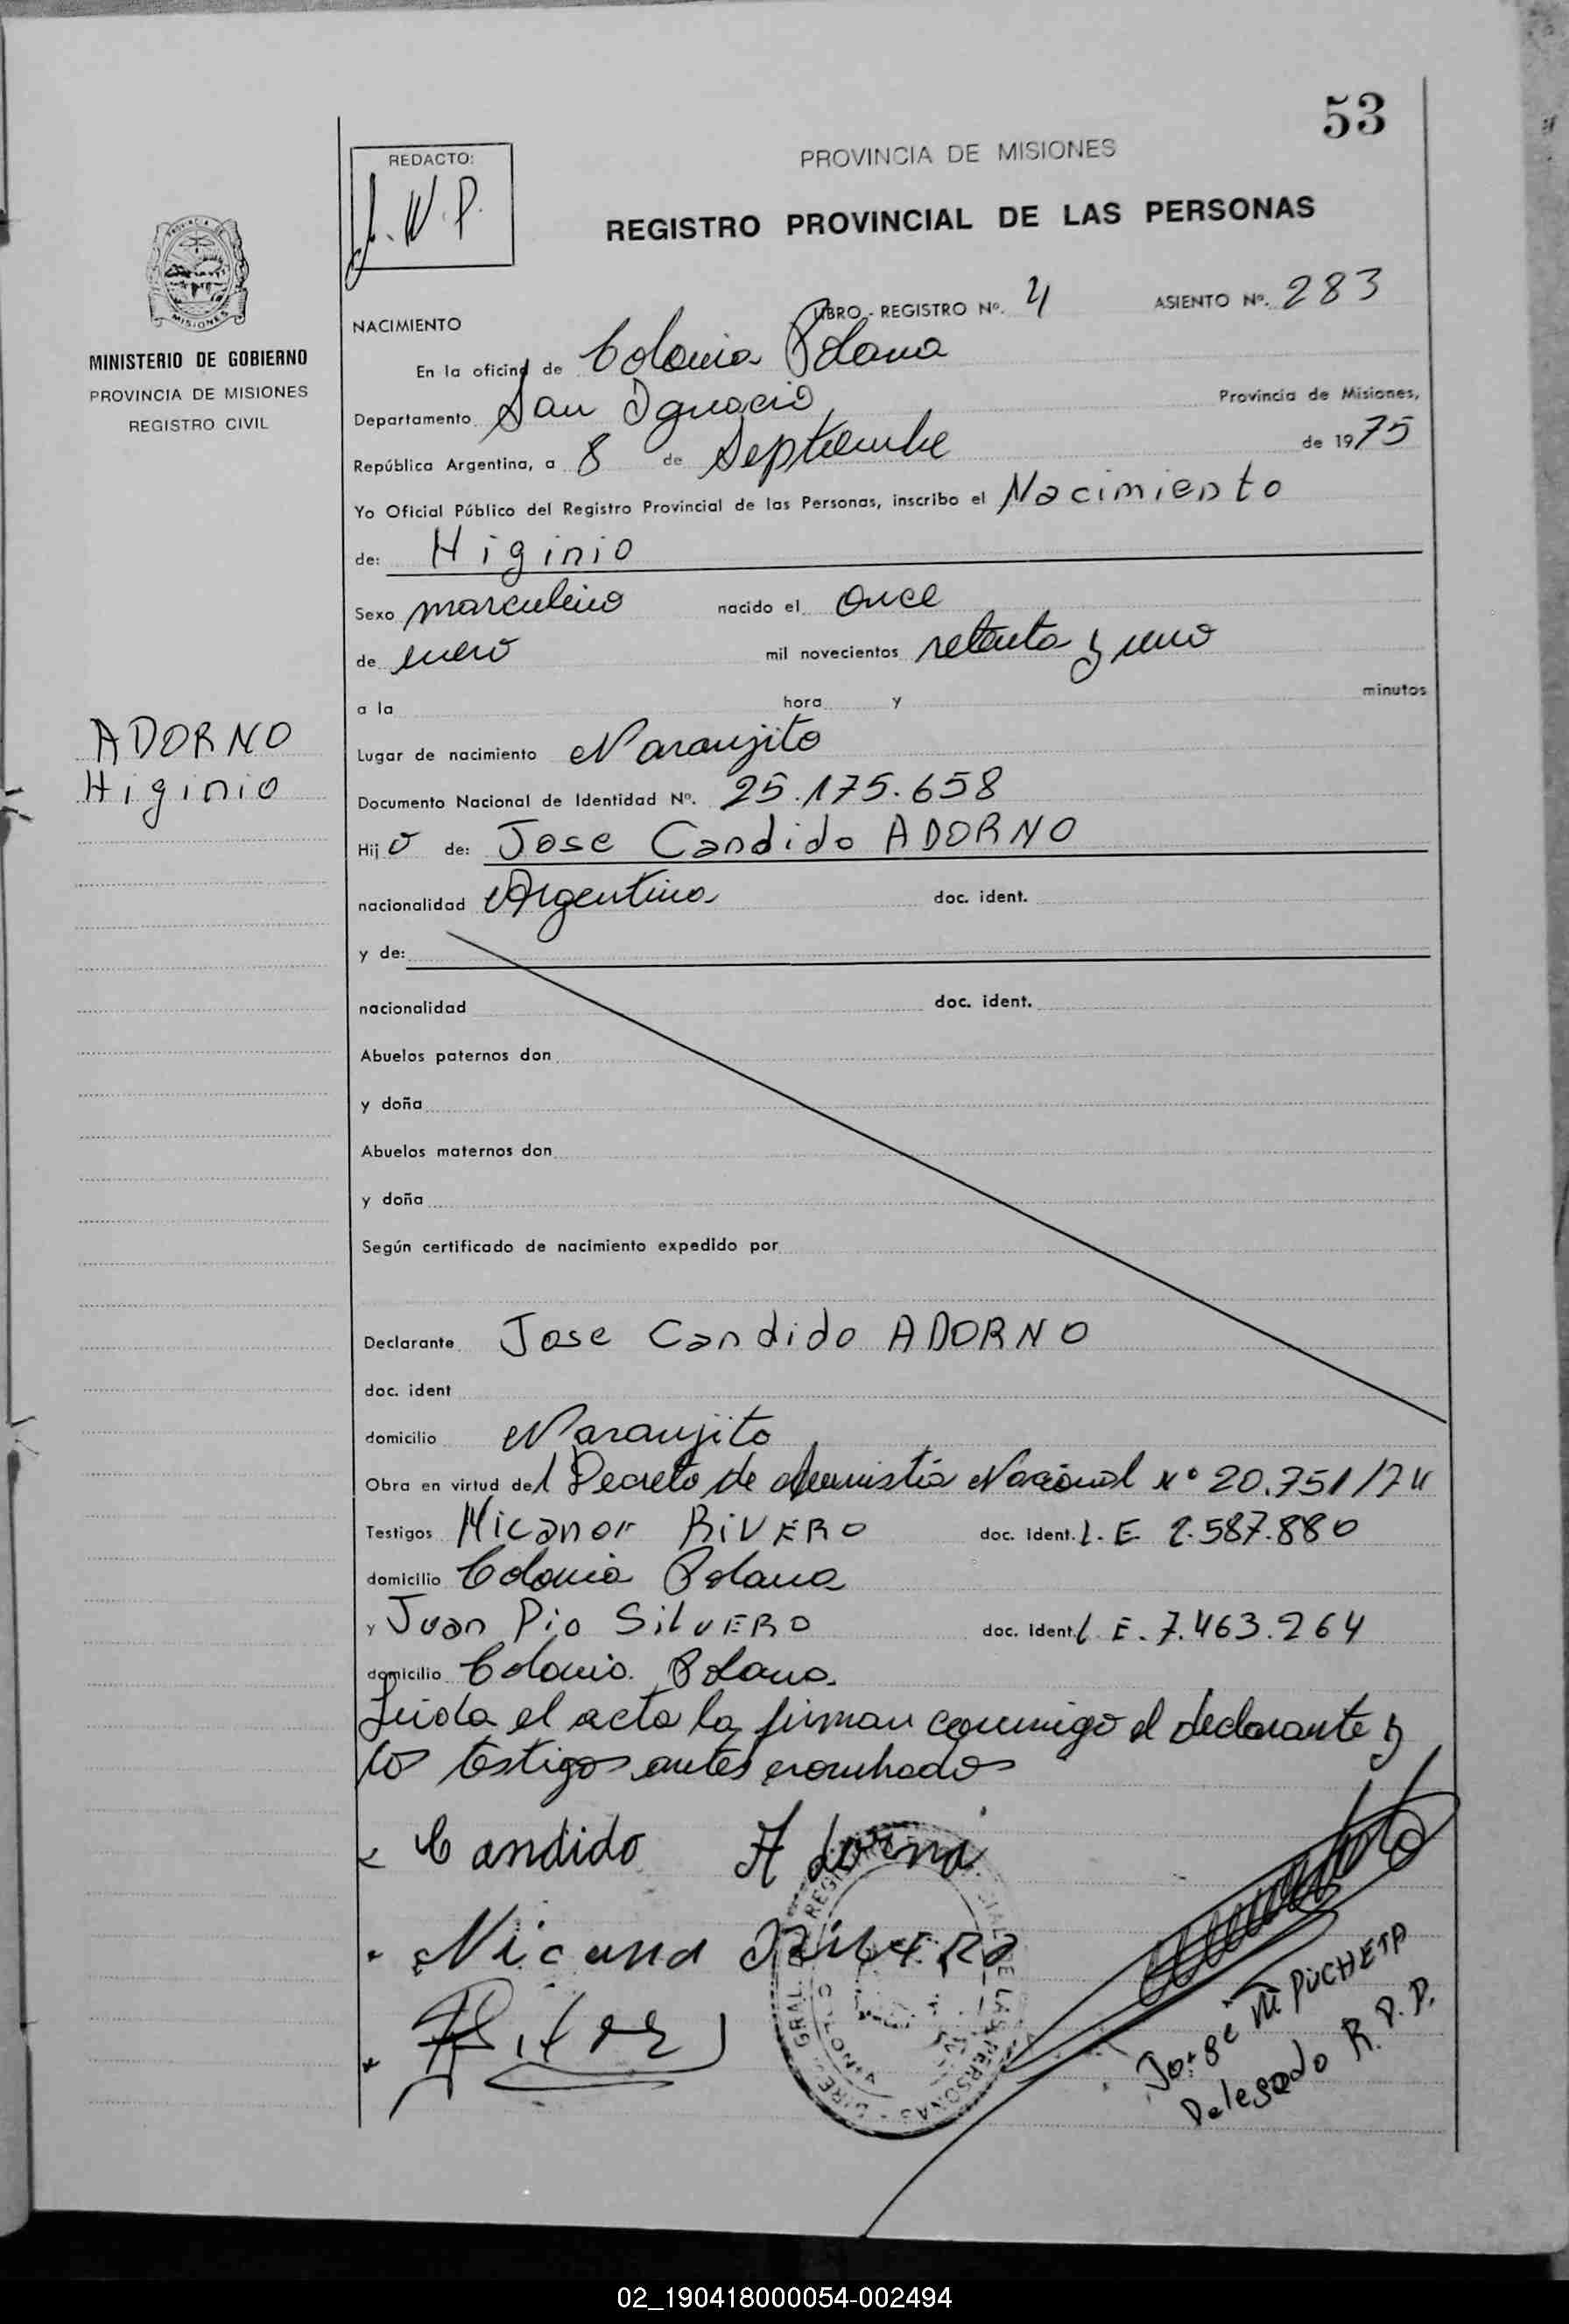 53
REDACTO:
J. W. P.
PROVINCIA DE MISIONES
REGISTRO PROVINCIAL DE LAS PERSONAS
MISIONES
MINISTERIO DE GOBIERNO
PROVINCIA DE MISIONES
REGISTRO CIVIL
NACIMIENTO LIBRO - REGISTRO Nº. 4 ASIENTO Nº. 283
En la oficina de Colonia Polana
Departamento San Ignacio, Provincia de Misiones,
República Argentina, a 8 de Septiembre de 1975
Yo Oficial Público del Registro Provincial de las Personas, inscribo el Nacimiento
de: Higinio
Sexo masculino nacido el once
de enero mil novecientos setenta y uno
a la hora y minutos
ADORNO
Higinio
Lugar de nacimiento Naranjito
Documento Nacional de Identidad Nº. 25.175.658
Hijo de: Jose Candido ADORNO
nacionalidad Argentina doc. ident.
y de:
nacionalidad doc. ident.
Abuelos paternos don
y doña
Abuelos maternos don
y doña
Según certificado de nacimiento expedido por
Declarante Jose Candido ADORNO
doc. ident
domicilio Naranjito
Obra en virtud del Decreto de Amnistia Nacional Nº 20.751/74
Testigos Nicanor RIVERO doc. ident. L. E 2.587.880
domicilio Colonia Polana
y Juan Pio SilvERO doc. ident. L. E. 7.463.264
domicilio Colonia Polana.
Leida el acta la firman conmigo el declarante y
los testigos antes
Candido Adorno
Jorge M PUCHETA
Delegado R. P. P.
02_190418000054-002494